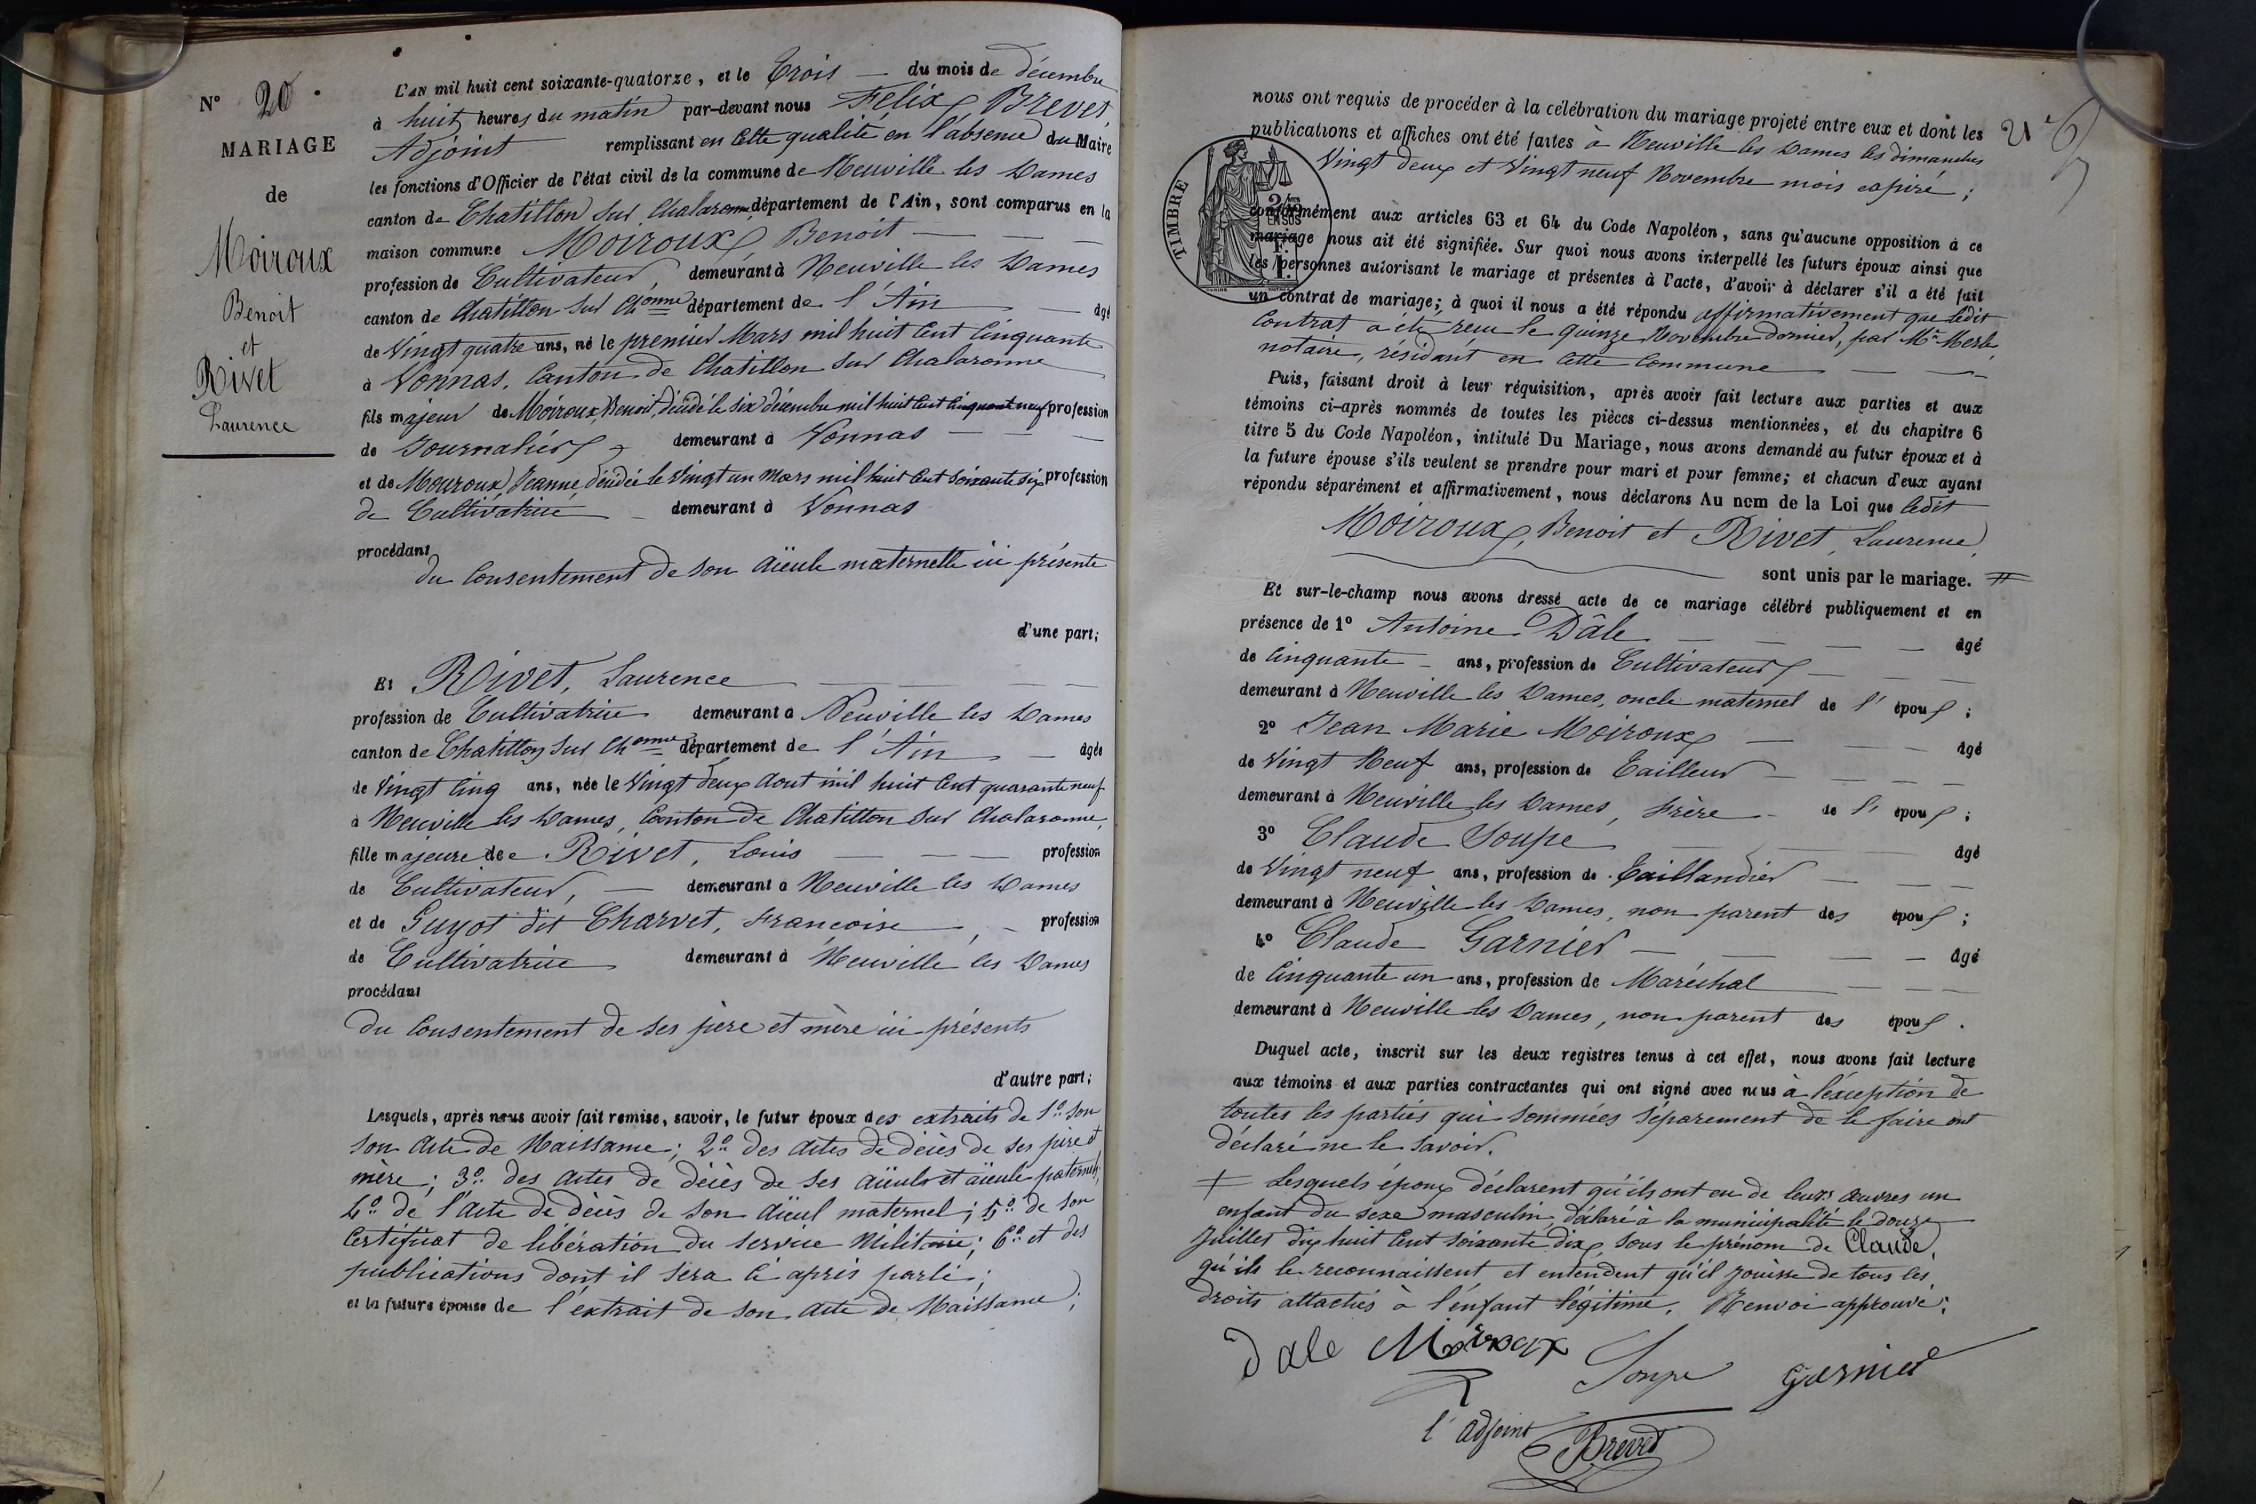 N° 20
MARIAGE
de
Moiroux
Benoit
et
Rivet
Laurence
L'AN mil huit cent soixante-quatorze, et le Trois — du mois de décembre
à huit heures du matin par-devant nous Félix Brevet,
Adjoint remplissant en cette qualité en l'absence du Maire
les fonctions d'Officier de l'état civil de la commune de Neuville les Dames
canton de Chatillon sur Chalaronne département de l'Ain, sont comparus en la
maison commune Moiroux, Benoit —
profession de Cultivateur, demeurant à Neuville les Dames
canton de Chatillon sur Chonne département de l'Ain — âgé
de Vingt quatre ans, né le premier Mars mil huit cent cinquante
à Vonnas, Canton de Chatillon sur Chalaronne
fils majeur de Moiroux, Benoit, décédé le six décembre mil huit cent cinquant neuf profession
de Journalier, demeurant à Vonnas —
et de Mouroux, Jeanne, décédée le vingt un Mars mil huit cent soixante six profession
de Cultivatrice — demeurant à Vonnas
procédant
du consentement de son aïeule maternelle ici présente
d'une part;
Et Rivet, Laurence —
profession de Cultivatrice demeurant à Neuville les Dames
canton de Chatillon sur Chonne département de l'Ain — âgée
de Vingt cinq ans, née le Vingt deux aout mil huit cent quarante neuf
à Neuville les Dames, Canton de Chatillon sur Chalaronne,
fille majeure de Rivet, Louis — profession
de Cultivateur, — demeurant à Neuville les Dames
et de Guyot dit Charvet, Françoise, — profession
de Cultivatrice demeurant à Neuville les Dames
procédant
du consentement de ses père et mère ici présents
d'autre part;
Lesquels, après nous avoir fait remise, savoir, le futur époux des extraits de 1° son
son acte de Naissance; 2° des actes de décès de ses père et
mère; 3° des actes de décès de ses aïeul et aïeule paternels;
4° de l'acte de décès de son aïeul maternel; 5° de son
Certificat de libération du service Militaire; 6° et des
publications dont il sera ci après parlé;
et la future épouse de l'extrait de son acte de Naissance;
nous ont requis de procéder à la célébration du mariage projeté entre eux et dont les
publications et affiches ont été faites à Neuville les Dames les dimanches
Vingt deux et Vingt neuf Novembre mois expiré;
TIMBRE
conformément aux articles 63 et 64 du Code Napoléon, sans qu'aucune opposition à ce
mariage nous ait été signifiée. Sur quoi nous avons interpellé les futurs époux ainsi que
les personnes autorisant le mariage et présentes à l'acte, d'avoir à déclarer s'il a été fait
un contrat de mariage; à quoi il nous a été répondu affirmativement que ledit
Contrat a été reçu le quinze Novembre dernier, par Me Merle,
notaire, résidant en cette Commune —
Puis, faisant droit à leur réquisition, après avoir fait lecture aux parties et aux
témoins ci-après nommés de toutes les pièces ci-dessus mentionnées, et du chapitre 6
titre 5 du Code Napoléon, intitulé Du Mariage, nous avons demandé au futur époux et à
la future épouse s'ils veulent se prendre pour mari et pour femme; et chacun d'eux ayant
répondu séparément et affirmativement, nous déclarons Au nom de la Loi que ledit
Moiroux, Benoit et Rivet, Laurence,
sont unis par le mariage. ‡
Et sur-le-champ nous avons dressé acte de ce mariage célébré publiquement et en
présence de 1° Antoine Dâle — âgé
de cinquante — ans, profession de Cultivateur —
demeurant à Neuville les Dames, oncle maternel de l'époux;
2° Jean Marie Moiroux — âgé
de Vingt Neuf ans, profession de Tailleur —
demeurant à Neuville les Dames, frère — de l'époux;
3° Claude Soupe — âgé
de Vingt neuf ans, profession de Taillandier —
demeurant à Neuville les Dames, non parent des époux;
4° Claude Garnier — âgé
de Cinquante un ans, profession de Maréchal —
demeurant à Neuville les Dames, non parent des époux.
Duquel acte, inscrit sur les deux registres tenus à cet effet, nous avons fait lecture
aux témoins et aux parties contractantes qui ont signé avec nous à l'éxception de
toutes les parties qui sommées séparement de le faire ont
déclaré ne le savoir.
‡ Lesquels époux déclarent qu'ils ont eu de leurs œuvres un
enfant du sexe masculin, déclaré à la municipalité le douze
Juillet dix huit cent soixante dix, sous le prénom de Claude,
qu'ils le reconnaissent et entendent qu'il jouisse de tous les
droits attachés à l'enfant légitime. Renvoi approuvé:
Dale Moiroux Soupe Garnier
l'adjoint
Brevet